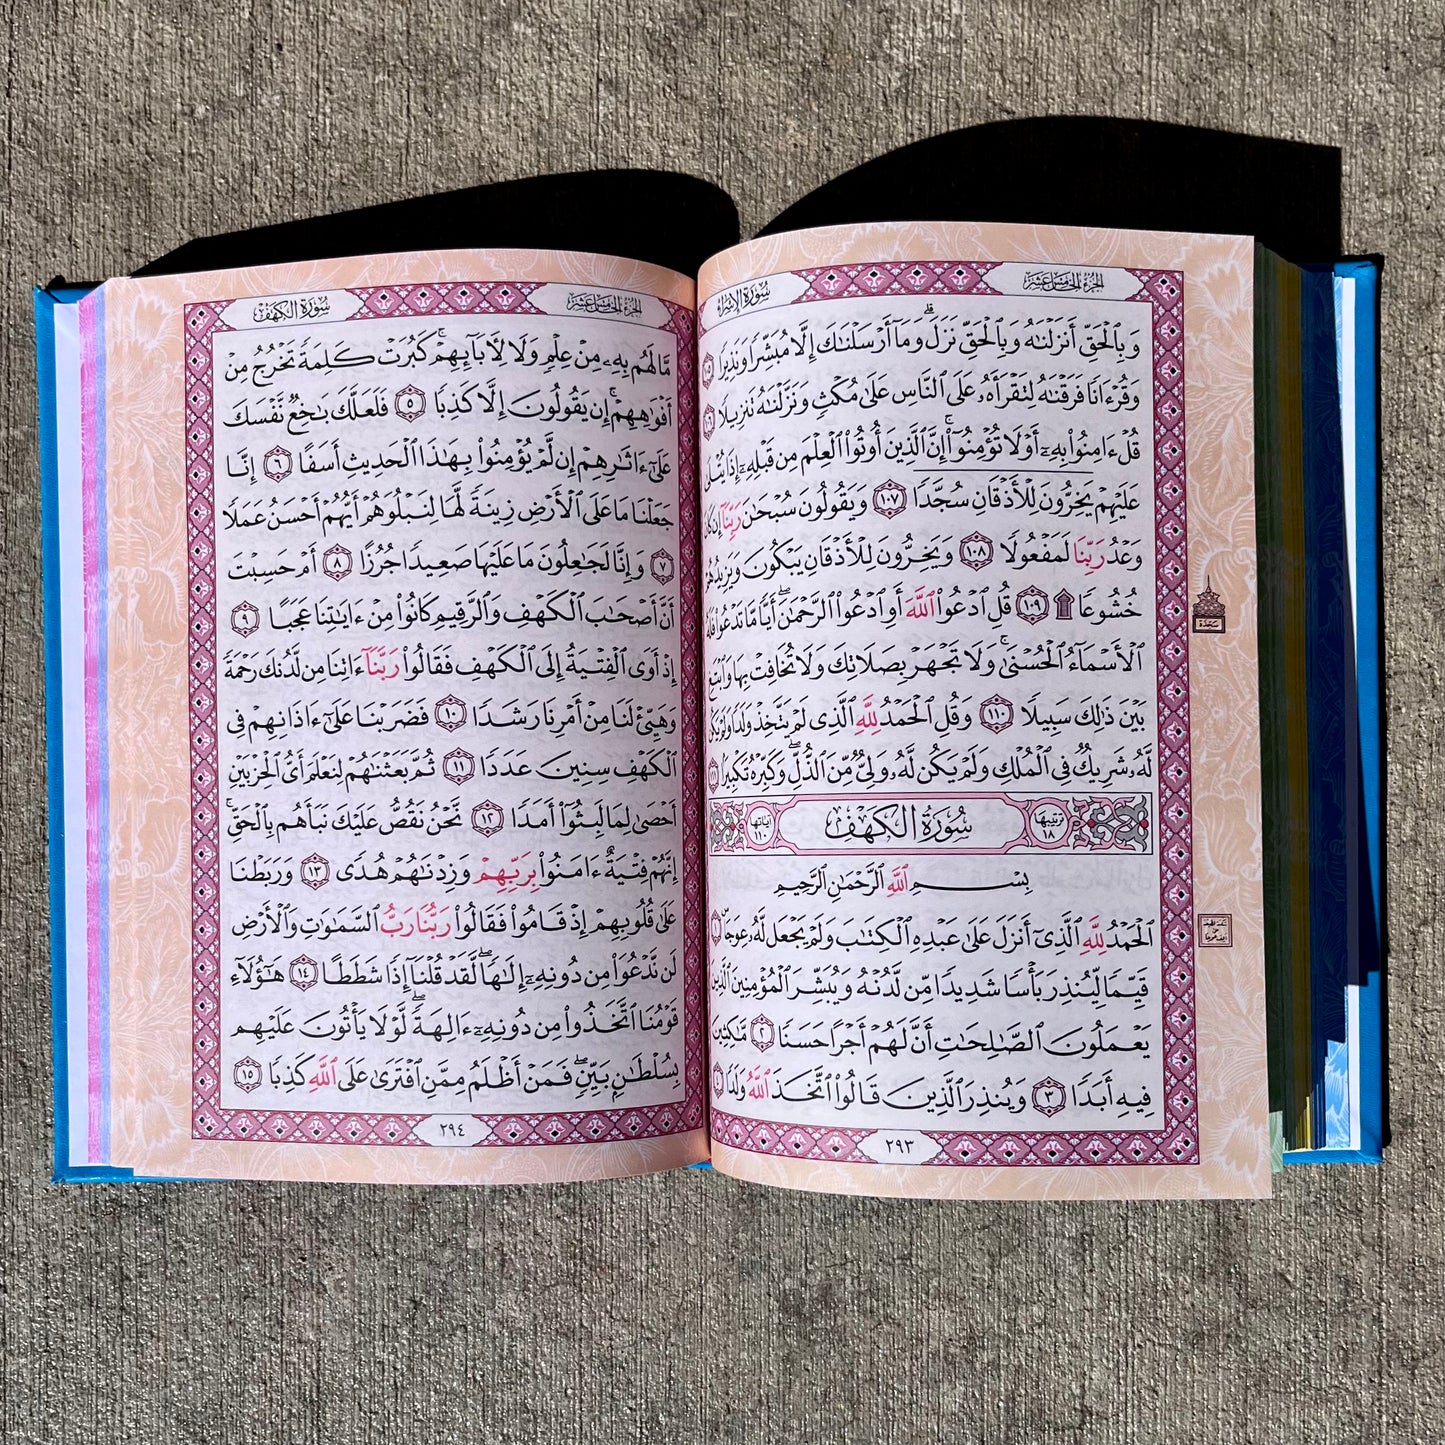 سُورَةُ الإِسْرَاءِ
الجُزْءُ الخَامِسَ عَشَرَ
وَبِٱلْحَقِّ أَنزَلْنَٰهُ وَبِٱلْحَقِّ نَزَلَ ۗ وَمَآ أَرْسَلْنَٰكَ إِلَّا مُبَشِّرًا وَنَذِيرًا ١٠٥
وَقُرْءَانًا فَرَقْنَٰهُ لِتَقْرَأَهُۥ عَلَى ٱلنَّاسِ عَلَىٰ مُكْثٍ وَنَزَّلْنَٰهُ تَنزِيلًا ١٠٦
قُلْ ءَامِنُوا۟ بِهِۦٓ أَوْ لَا تُؤْمِنُوٓا۟ ۚ إِنَّ ٱلَّذِينَ أُوتُوا۟ ٱلْعِلْمَ مِن قَبْلِهِۦٓ إِذَا يُتْلَىٰ
عَلَيْهِمْ يَخِرُّونَ لِلْأَذْقَانِ سُجَّدًا ١٠٧ وَيَقُولُونَ سُبْحَٰنَ رَبِّنَآ إِن كَانَ
وَعْدُ رَبِّنَا لَمَفْعُولًا ١٠٨ وَيَخِرُّونَ لِلْأَذْقَانِ يَبْكُونَ وَيَزِيدُهُمْ
خُشُوعًا ۩ ١٠٩ قُلِ ٱدْعُوا۟ ٱللَّهَ أَوِ ٱدْعُوا۟ ٱلرَّحْمَٰنَ ۖ أَيًّا مَّا تَدْعُوا۟ فَلَهُ
ٱلْأَسْمَآءُ ٱلْحُسْنَىٰ ۚ وَلَا تَجْهَرْ بِصَلَاتِكَ وَلَا تُخَافِتْ بِهَا وَٱبْتَغِ
بَيْنَ ذَٰلِكَ سَبِيلًا ١١٠ وَقُلِ ٱلْحَمْدُ لِلَّهِ ٱلَّذِى لَمْ يَتَّخِذْ وَلَدًا وَلَمْ يَكُن
لَّهُۥ شَرِيكٌ فِى ٱلْمُلْكِ وَلَمْ يَكُن لَّهُۥ وَلِىٌّ مِّنَ ٱلذُّلِّ ۖ وَكَبِّرْهُ تَكْبِيرًۢا ١١١
ترتيبها ١٨ سُورَةُ الكَهْفِ آياتها ١١٠
بِسْمِ ٱللَّهِ ٱلرَّحْمَٰنِ ٱلرَّحِيمِ
ٱلْحَمْدُ لِلَّهِ ٱلَّذِىٓ أَنزَلَ عَلَىٰ عَبْدِهِ ٱلْكِتَٰبَ وَلَمْ يَجْعَل لَّهُۥ عِوَجَا ۜ ١
قَيِّمًا لِّيُنذِرَ بَأْسًا شَدِيدًا مِّن لَّدُنْهُ وَيُبَشِّرَ ٱلْمُؤْمِنِينَ ٱلَّذِينَ
يَعْمَلُونَ ٱلصَّٰلِحَٰتِ أَنَّ لَهُمْ أَجْرًا حَسَنًا ٢ مَّٰكِثِينَ
فِيهِ أَبَدًا ٣ وَيُنذِرَ ٱلَّذِينَ قَالُوا۟ ٱتَّخَذَ ٱللَّهُ وَلَدًا ٤
٢٩٣
سَجْدَة
سُورَةُ الكَهْفِ
الجُزْءُ الخَامِسَ عَشَرَ
مَّا لَهُم بِهِۦ مِنْ عِلْمٍ وَلَا لِـَٔابَآئِهِمْ ۚ كَبُرَتْ كَلِمَةً تَخْرُجُ مِنْ
أَفْوَٰهِهِمْ ۚ إِن يَقُولُونَ إِلَّا كَذِبًا ٥ فَلَعَلَّكَ بَٰخِعٌ نَّفْسَكَ
عَلَىٰٓ ءَاثَٰرِهِمْ إِن لَّمْ يُؤْمِنُوا۟ بِهَٰذَا ٱلْحَدِيثِ أَسَفًا ٦ إِنَّا
جَعَلْنَا مَا عَلَى ٱلْأَرْضِ زِينَةً لَّهَا لِنَبْلُوَهُمْ أَيُّهُمْ أَحْسَنُ عَمَلًا
٧ وَإِنَّا لَجَٰعِلُونَ مَا عَلَيْهَا صَعِيدًا جُرُزًا ٨ أَمْ حَسِبْتَ
أَنَّ أَصْحَٰبَ ٱلْكَهْفِ وَٱلرَّقِيمِ كَانُوا۟ مِنْ ءَايَٰتِنَا عَجَبًا ٩
إِذْ أَوَى ٱلْفِتْيَةُ إِلَى ٱلْكَهْفِ فَقَالُوا۟ رَبَّنَآ ءَاتِنَا مِن لَّدُنكَ رَحْمَةً
وَهَيِّئْ لَنَا مِنْ أَمْرِنَا رَشَدًا ١٠ فَضَرَبْنَا عَلَىٰٓ ءَاذَانِهِمْ فِى
ٱلْكَهْفِ سِنِينَ عَدَدًا ١١ ثُمَّ بَعَثْنَٰهُمْ لِنَعْلَمَ أَىُّ ٱلْحِزْبَيْنِ
أَحْصَىٰ لِمَا لَبِثُوٓا۟ أَمَدًا ١٢ نَّحْنُ نَقُصُّ عَلَيْكَ نَبَأَهُم بِٱلْحَقِّ ۚ
إِنَّهُمْ فِتْيَةٌ ءَامَنُوا۟ بِرَبِّهِمْ وَزِدْنَٰهُمْ هُدًى ١٣ وَرَبَطْنَا
عَلَىٰ قُلُوبِهِمْ إِذْ قَامُوا۟ فَقَالُوا۟ رَبُّنَا رَبُّ ٱلسَّمَٰوَٰتِ وَٱلْأَرْضِ
لَن نَّدْعُوَا۟ مِن دُونِهِۦٓ إِلَٰهًا ۖ لَّقَدْ قُلْنَآ إِذًا شَطَطًا ١٤ هَٰٓؤُلَآءِ
قَوْمُنَا ٱتَّخَذُوا۟ مِن دُونِهِۦٓ ءَالِهَةً ۖ لَّوْلَا يَأْتُونَ عَلَيْهِم
بِسُلْطَٰنٍۭ بَيِّنٍ ۖ فَمَنْ أَظْلَمُ مِمَّنِ ٱفْتَرَىٰ عَلَى ٱللَّهِ كَذِبًا ١٥
٢٩٤